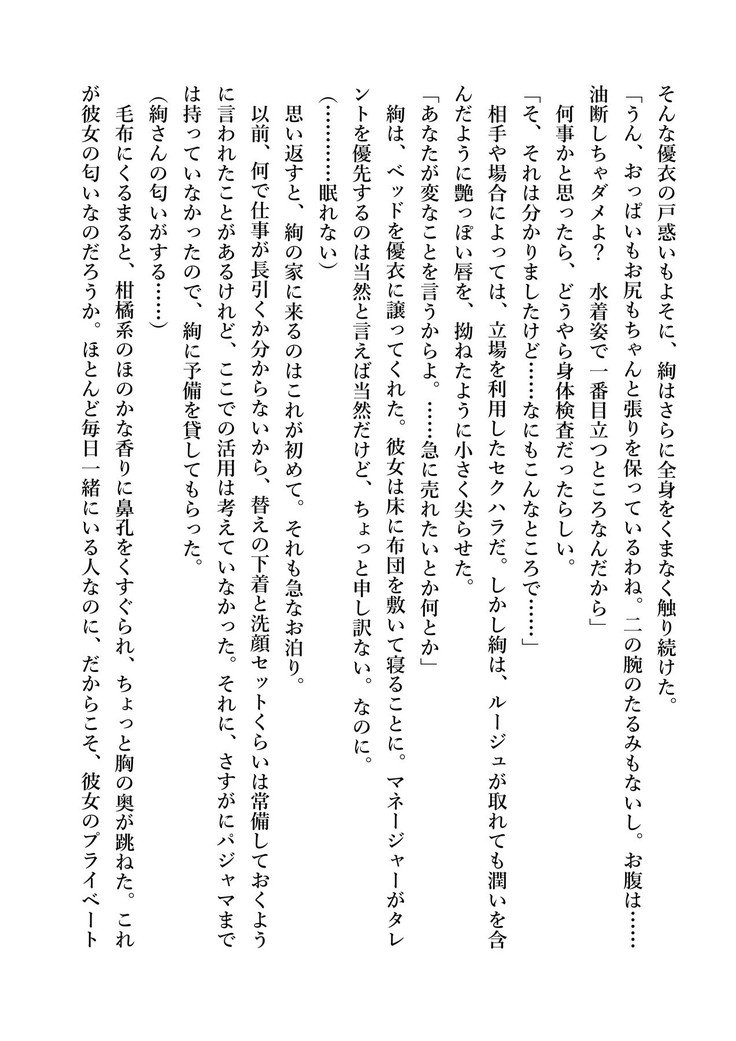 そんな優衣の戸惑いもよそに、絢はさらに全身をくまなく触り続けた。
「うん、おっぱいもお尻もちゃんと張りを保っているわね。二の腕のたるみもないし。お腹は……
油断しちゃダメよ？　水着姿で一番目立つところなんだから」
何事かと思ったら、どうやら身体検査だったらしい。
「そ、それは分かりましたけど……なにもこんなところで……」
相手や場合によっては、立場を利用したセクハラだ。しかし絢は、ルージュが取れても潤いを含
んだように艶っぽい唇を、拗ねたように小さく尖らせた。
「あなたが変なことを言うからよ。……急に売れたいとか何とか」
絢は、ベッドを優衣に譲ってくれた。彼女は床に布団を敷いて寝ることに。マネージャーがタレ
ントを優先するのは当然と言えば当然だけど、ちょっと申し訳ない。なのに。
（…………眠れない）
思い返すと、絢の家に来るのはこれが初めて。それも急なお泊り。
以前、何で仕事が長引くか分からないから、替えの下着と洗顔セットくらいは常備しておくよう
に言われたことがあるけれど、ここでの活用は考えていなかった。それに、さすがにパジャマまで
は持っていなかったので、絢に予備を貸してもらった。
（絢さんの匂いがする……）
毛布にくるまると、柑橘系のほのかな香りに鼻孔をくすぐられ、ちょっと胸の奥が跳ねた。これ
が彼女の匂いなのだろうか。ほとんど毎日一緒にいる人なのに、だからこそ、彼女のプライベート